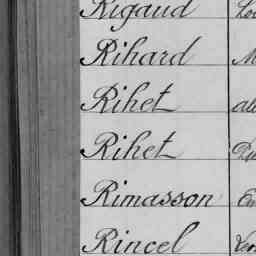 Rigaud
Rihard
Rihet
Rihet
Rimasson
Rincel